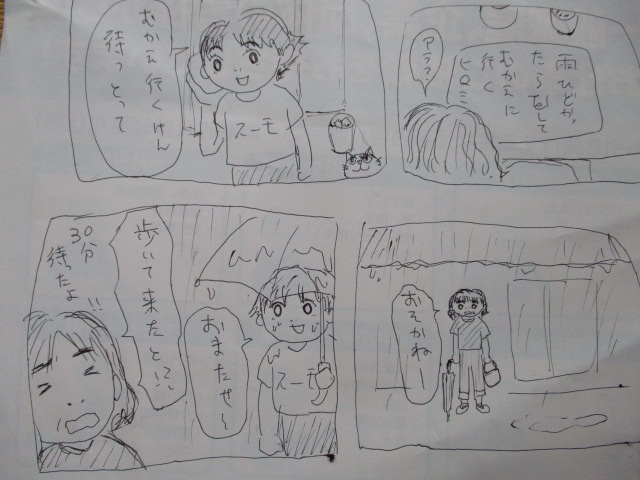 アララ
雨ひどかっ
たら して
むかえに
行く
ヒロミ
むかえ行くけん
待っとって
スーモ
おそかねー
おまたせ〜
スーモ
歩いて来たと!?
30分
待ったよ!!